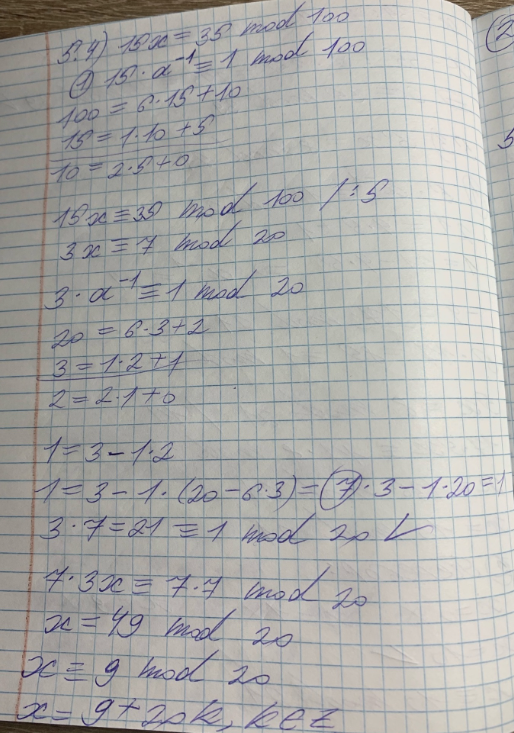 5.4) 15x = 35 mod 100
① 15 · a⁻¹ ≡ 1 mod 100
100 = 6·15+10
15 = 1·10+5
10 = 2·5+0
15x ≡ 35 mod 100 /:5
3x ≡ 7 mod 20
3·a⁻¹ ≡ 1 mod 20
20 = 6·3+2
3 = 1·2+1
2 = 2·1+0
1 = 3 - 1·2
1 = 3 - 1·(20 - 6·3) = ⑦·3 - 1·20 = 1
3·7 = 21 ≡ 1 mod 20 ✓
7·3x ≡ 7·7 mod 20
x = 49 mod 20
x ≡ 9 mod 20
x = 9 + 20k, k∈Z
②
5